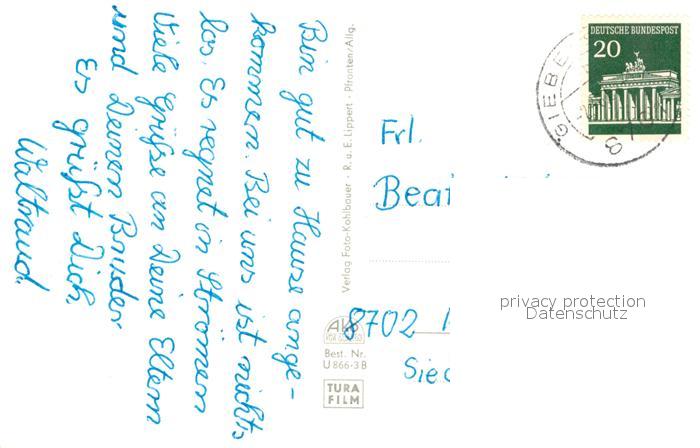 Bin gut zu Hause ange-
kommen. Bei uns ist nichts
los. Es regnet in Strömen
Viele Grüße an Deine Eltern
und Deinen Bruder
Es grüßt Dich
Waltraud.
Verlag Foto-Kohlbauer · R. u. E. Lippert · Pfronten/Allg.
DEUTSCHE BUNDESPOST
20
GIEBE
8
Frl.
8702
Best. Nr.
U 866-3 B
TURA
FILM
privacy protection
Datenschutz